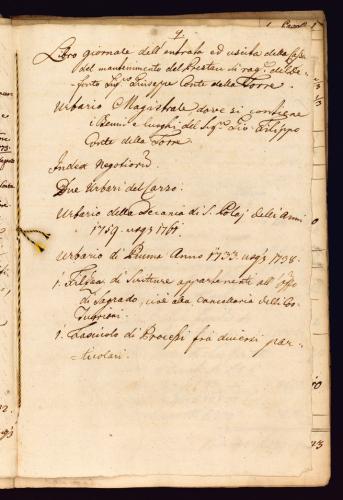 4
Libro giornale dell'entrata ed uscita della
del mantenimento del
Sigr. Giuseppe Conte della Torre.
Urbario Magistrale dove si contiene
i Beni e luoghi del Sigr. Gio: Filippo
Conte della Torre
Index Negotiorũ.
Due Urbari del Carso.
Urbario della Decania di S. Poloj delli Anni
1759. usqs 1761
Urbario di Anno 1733 usqs 1738.
1. Filza di Scritture appartenenti all'
di Sagrado, cioè alla Cancellaria delli
1. Fascicolo di Processi frà diversi par-
-ticolari.